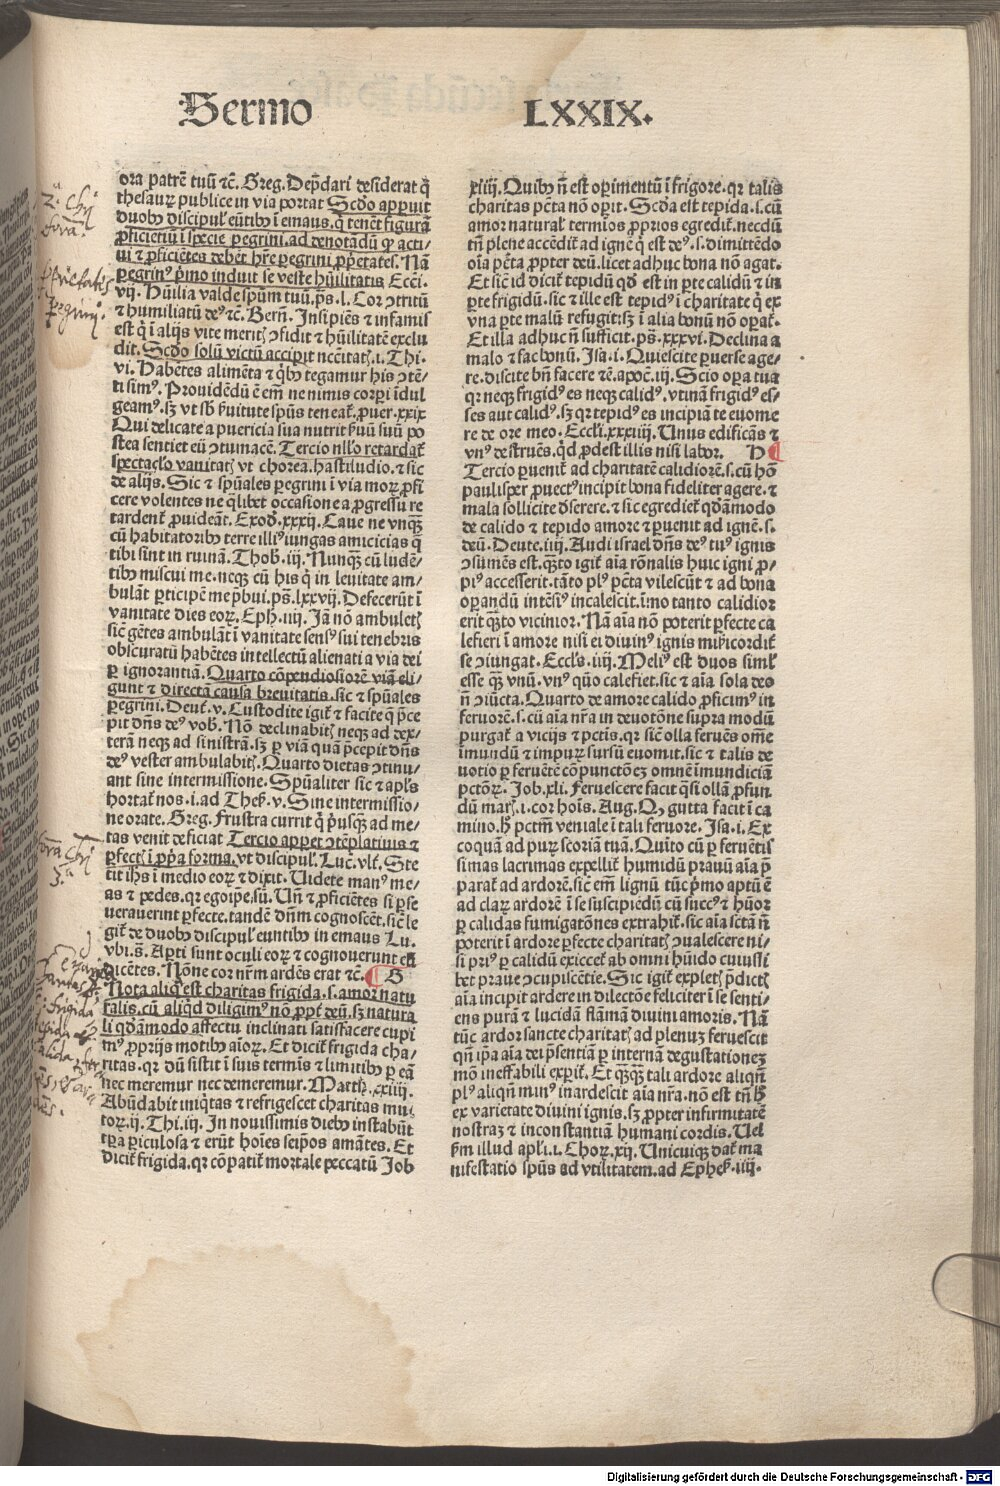 Sermo LXXIX.
ora patrē tuū ⁊c̄. Greg. Dep̄dari desiderat q̇
thesauꝝ publice in via portat Scd̄o apparuit
duobꝰ discipul' eūtibꝰ ī emaus. q̇ tenēt figurā
ꝓficietiū ī specie pegrini. ad denotādū ꝙ acti/
ui ⁊ ꝓficiētes debēt hr̄e pegrini ꝓprietates. Nā
pegrinꝰ p̄mo induit se veste hūilitatis Ecci.
vij. Hūilia valde spūm tuū. ps̄. l. Cor ↄtritū
⁊ humiliatū deꝰ ⁊c̄. Bern̄. Insipiēs ⁊ infamis
est q̇ ī alijs vite meritꝭ ↄfidit ⁊ hūilitatē exclu
dit. Scd̄o solū victū accipit nc̄citatꝭ. i. Thi.
vi. Habētes alimēta ⁊ qͥbꝰ tegamur his ↄtē/
ti simꝰ. Prouidēdū ē em̄ ne nimis corpi īdul
geamꝰ. sꝫ vt sb̄ ẜuitute spūs teneat᷑. ꝓuer. xxix
Qui delicate a puericia sua nutrit ẜuū suū po
stea sentiet eū ↄtumacē. Tercio nll'o retardat᷑
spectacl'o vanitatꝭ vt chorea. hastiludio. ⁊ sic
de alijs. Sic ⁊ spūales pegrini ī via moꝝ ꝓfi
cere volentes ne qͣlibet occasione a ꝓgressu re
tardent᷑ ꝓuideāt. Exod̄. xxxij. Caue ne vnqͣꝫ
cū habitatoribꝰ terre illiꝰ iungas amicicias q̄
tibi sūnt in ruinā. Thob. iij. Nunqͣꝫ cū ludē/
tibꝰ miscui me. neqꝫ cū his q̇ in leuitate am/
bulāt ꝑticipē me p̄bui. ps̄. lxxvij. Defecerūt ī
vanitate dies eoꝝ. Eph. iiij. Jā nō ambuletꝭ
sic̄ gētes ambulāt ī vanitate sensꝰ sui tenebris
obscuratū habētes intellectū alienati a via dei
ꝑ ignorantiā. Quarto cōpendiosiorē viā eli/
gunt ⁊ directā causa breuitatis. sic ⁊ spūales
pegrini. Deut᷑. v. Custodite igit᷑ ⁊ facite q̄ p̄ce
pit dn̄s deꝰ vob̄. Nō declinabitꝭ neqꝫ ad dex/
terā neqꝫ ad sinistrā. sꝫ ꝑ viā quā p̄cepit dn̄s
deꝰ vester ambulabitꝭ. Quarto dietas ↄtinu/
ant sine intermissione. Spūaliter sic ⁊ apl's
hortat᷑ nos. i. ad Thes̄. v. Sine intermissio/
ne orate. Greg. Frustra currit q̇ p̄usqͣꝫ ad me/
tas venit deficiat Tercio apparet ↄtēplatiuis ⁊
ꝑfectꝭ ī ꝓpͥa forma. vt discipul'. Luc̄. vlt̄. Ste
tit ihs̄ ī medio eoꝝ ⁊ dixit. Uidete manꝰ me/
as ⁊ pedes. qꝛ ego ip̄e. sū. Un̄ ⁊ ꝓficiētes si ꝑse
uerauerint ꝑfecte. tandē dn̄m cognoscēt. sic̄ le
git᷑ de duobꝰ discipul' euntibꝰ in emaus Lu.
vbi. s̄. Apti sunt oculi eoꝝ ⁊ cognouerunt eū
dicētes. Nōne cor nr̄m ardēs erat ⁊c̄. B
Nota aliqͣ est charitas frigida. s. amor natu
ralis. cū aliqͥd diligimꝰ nō ꝓpt̄ deū. sꝫ natura
li qd̄āmodo affectu inclinati satisfacere cupi
mꝰ ꝓprijs motibꝰ aīoꝝ. Et dicit᷑ frigida cha/
ritas. qꝛ dū sistit ī suis termīs ⁊ limitibꝰ ꝑ eā
nec meremur nec demeremur. Matth. xxiiij.
Abūdabit iniqͥtas ⁊ refrigescet charitas mul
toꝝ. ij. Thi. iij. In nouissimis diebꝰ instabūt
tꝑa ꝑiculosa ⁊ erūt hoīes seip̄os amātes. Et
dicit᷑ frigida. qꝛ cōpatit᷑ mortale peccatū Job
xliij. Quibꝰ n̄ est oꝑimentū ī frigore. qꝛ talis
charitas pctā nō oꝑit. Scd̄a est tepida. s. cū
amor natural' termīos ꝓprios egredit᷑. necdū
tn̄ plene accedit᷑ ad ignē q̇ est deꝰ. s. dimittēdo
oīa pctā ꝓpter deū. licet adhuc bona nō agat.
Et sic̄ id dicit᷑ tepidū qd̄ est in ꝑte calidū ⁊ in
ꝑte frigidū. sic ⁊ ille est tepidꝰ ī charitate q̇ ex
vna ꝑte malū refugit. sꝫ ī alia bonū nō oꝑat᷑.
Et illa adhuc n̄ sufficit. ps̄. xxxvi. Declina a
malo ⁊ fac bonū. Isa. i. Quiescite ꝑuerse age/
re. discite bn̄ facere ⁊c̄. apoc̄. iij. Scio oꝑa tua
qꝛ neqꝫ frigidꝰ es neqꝫ calidꝰ. vtinā frigidꝰ es/
ses aut calidꝰ. sꝫ qꝛ tepidꝰ es incipiā te euome
re de ore meo. Eccl'i. xxxiiij. Unus edificās ⁊
vnꝰ destruēs. qͥd ꝓdest illis nisi labor. D
Tercio ꝑuenit᷑ ad charitatē calidiorē. s. cū hō
paulisper ꝓuectꝰ incipit bona fideliter agere. ⁊
mala sollicite d̄serere. ⁊ sic egredit᷑ qd̄āmodo
de calido ⁊ tepido amore ⁊ ꝑuenit ad ignē. s.
deū. Deute. iiij. Audi israel dn̄s deꝰ tuꝰ ignis
ↄsumēs est. qͣꝫto igit᷑ aīa rōnalis huic igni ꝓ/
piꝰ accesserit. tāto plꝰ pctā vilescūt ⁊ ad bona
oꝑandū intēsiꝰ incalescit. īmo tanto calidior
erit qͣꝫto vicinior. Nā aīa nō poterit ꝑfecte ca
lefieri ī amore nisi ei diuinꝰ ignis mīsͥcordit᷑
se ↄiungat. Eccl's. iiij. Meliꝰ est duos siml'
esse qͣꝫ vnū. vnꝰ qūo calefiet. sic ⁊ aīa sola deo
n̄ ↄiūcta. Quarto de amore calido ꝓficimꝰ in
feruorē. s. cū aīa nr̄a in deuotōne supra modū
purgat᷑ a vicijs ⁊ pctis. qꝛ sic̄ olla feruēs om̄e
īmundū ⁊ impuꝝ sursū euomit. sic ⁊ talis de
uotio ꝑ feruētē cōpunctōeꝫ omnē īmundiciā
pctōꝝ. Job. xli. Feruescere facit qͣsi ollā ꝓfun
dū marꝭ. i. cor hoīs. Aug. Qꝫ gutta facit ī ca
mino. h̄ pctm̄ veniale ī tali feruore. Isa. i. Ex
coquā ad puꝝ scoriā tuā. Quīto cū ꝑ feruētis
simas lacrimas expellit᷑ humidū prauū aīa p̄
parat᷑ ad ardorē. sic̄ em̄ lignū tūc p̄mo aptū ē
ad claꝝ ardorē ī se suscipiēdū cū succꝰ ⁊ hūor
ꝑ calidas fumigatōnes extrahit᷑. sic aīa sctā n̄
poterit ī ardore ꝑfecte charitatꝭ ↄualescere ni/
si priꝰ ꝑ calidū exiccet᷑ ab omni hūido cuiussi
bet praue ↄcupiscētie. Sic igit᷑ expletꝭ p̄dictꝭ
aīa incipit ardere in dilectōne feliciter ī se senti/
ens purā ⁊ lucidā flāmā diuini amoris. Nā
tūc ardor sancte charitatꝭ ad plenuꝫ feruescit
qn̄ ip̄a aīa dei p̄sentiā ꝑ internā degustationeꝫ
mō ineffabili exꝑit᷑. Et qͣꝫqͣꝫ tali ardore aliqn̄
plꝰ aliqn̄ minꝰ inardescit aīa nr̄a. nō est tn̄ h̄
ex varietate diuini ignis. sꝫ ꝓpter infirmitatē
nostraꝫ ⁊ inconstantiā humani cordis. Uel
ẜm illud apl'i. i. Choꝝ. xij. Unicuiqꝫ dat᷑ ma
nifestatio spūs ad vtilitatem. ad Ephes̄. iiij.
Digitalisierung gefördert durch die Deutsche Forschungsgemeinschaft - DFG